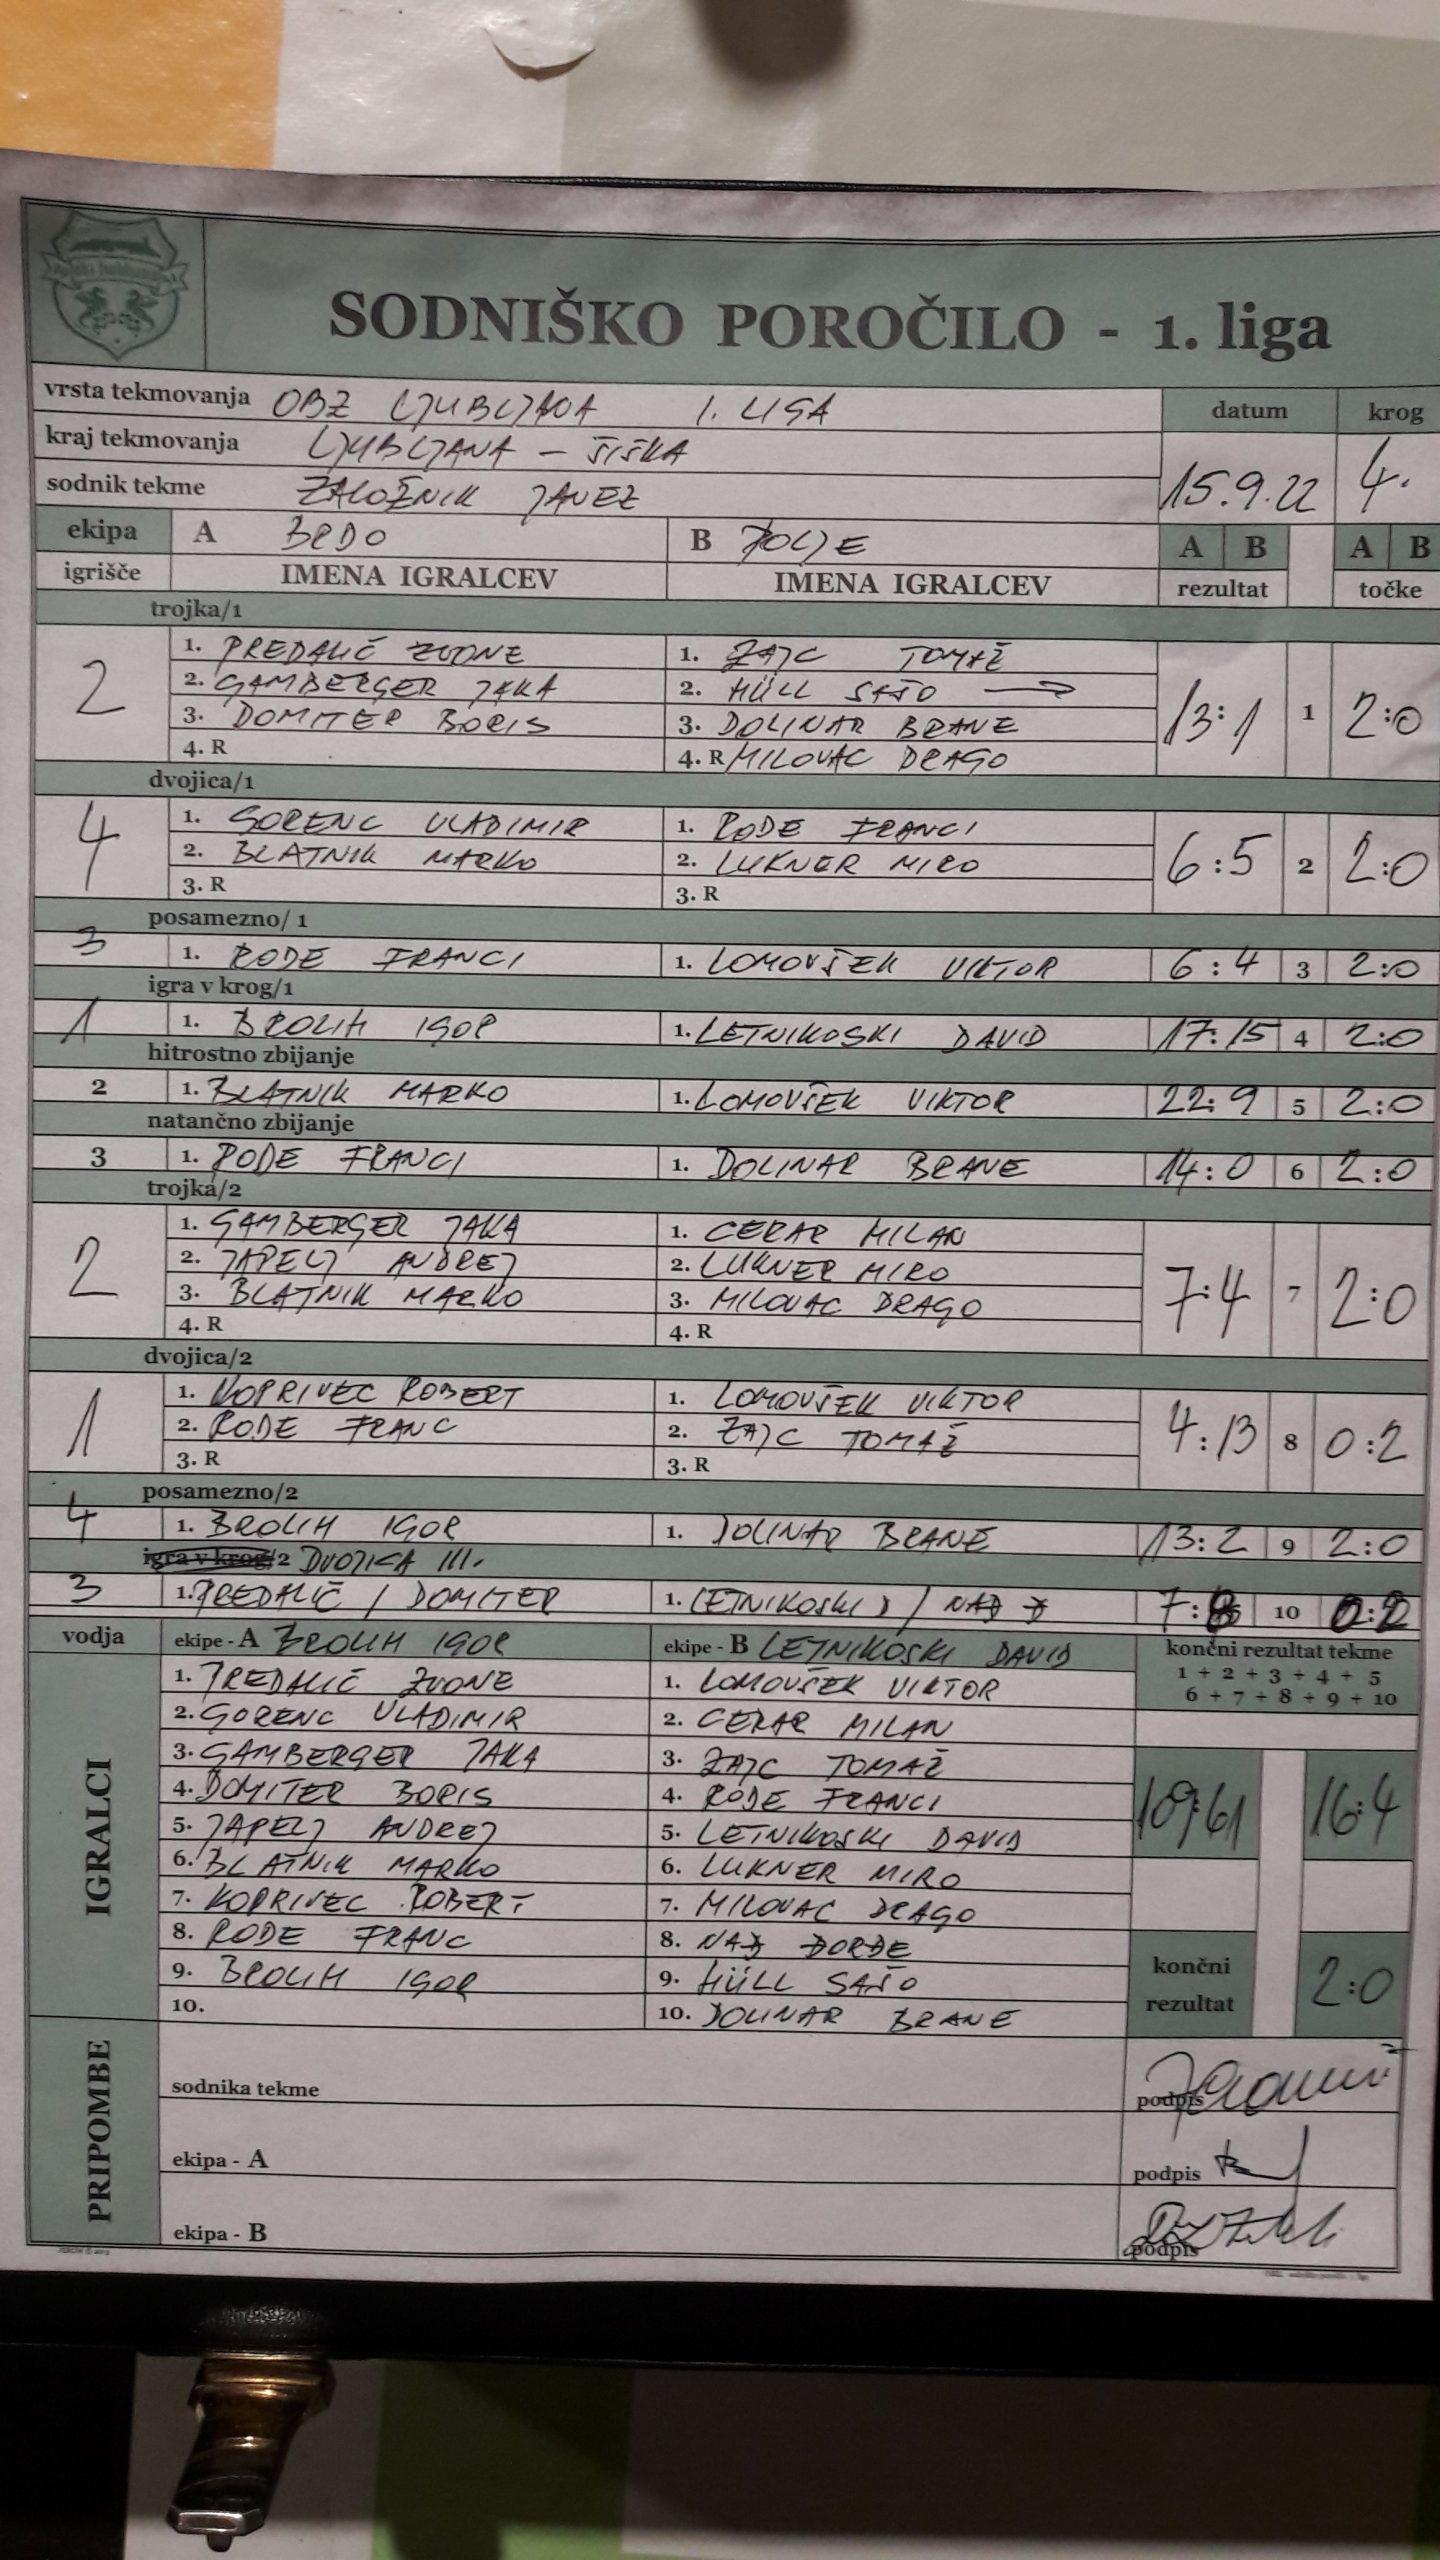 SODNIŠKO POROČILO - 1. liga
vrsta tekmovanja OBZ LJUBLJANA 1. LIGA datum krog
kraj tekmovanja LJUBLJANA - ŠIŠKA 15.9.22 4.
sodnik tekme ZALOŽNIK JANEZ
ekipa A BRDO B POLJE A B A B
igrišče IMENA IGRALCEV IMENA IGRALCEV rezultat točke
trojka/1
2 1. PREDALIČ ZVONE 1. ZAJC TOMAŽ 13:1 1 2:0
2. GAMBERGER JAKA 2. HÜLL SAŠO →
3. DOMITER BORIS 3. DOLINAR BRANE
4. R 4. R MILOVAC DRAGO
dvojica/1
4 1. GORENC VLADIMIR 1. RODE FRANCI 6:5 2 2:0
2. BLATNIK MARKO 2. LUKNER MIRO
3. R 3. R
posamezno/ 1
3 1. RODE FRANCI 1. LOMOVŠEK VIKTOR 6:4 3 2:0
igra v krog/1
1 1. BROLIH IGOR 1. LETNIKOSKI DAVID 17:15 4 2:0
hitrostno zbijanje
2 1. BLATNIK MARKO 1. LOMOVŠEK VIKTOR 22:9 5 2:0
natančno zbijanje
3 1. RODE FRANCI 1. DOLINAR BRANE 14:0 6 2:0
trojka/2
2 1. GAMBERGER JAKA 1. CERAR MILAN 7:4 7 2:0
2. JAPELJ ANDREJ 2. LUKNER MIRO
3. BLATNIK MARKO 3. MILOVAC DRAGO
4. R 4. R
dvojica/2
1 1. KOPRIVEC ROBERT 1. LOMOVŠEK VIKTOR 4:13 8 0:2
2. RODE FRANC 2. ZAJC TOMAŽ
3. R 3. R
posamezno/2
4 1. BROLIH IGOR 1. DOLINAR BRANE 13:2 9 2:0
igra v krog/2 DVOJICA III.
3 1. PREDALIČ / DOMITER 1. LETNIKOSKI D / NAĐ Đ 7:8 10 0:2
vodja ekipe - A BROLIH IGOR ekipe - B LETNIKOSKI DAVID končni rezultat tekme
1 + 2 + 3 + 4 + 5
6 + 7 + 8 + 9 + 10
IGRALCI
1. PREDALIČ ZVONE 1. LOMOVŠEK VIKTOR
2. GORENC VLADIMIR 2. CERAR MILAN
3. GAMBERGER JAKA 3. ZAJC TOMAŽ
4. DOMITER BORIS 4. RODE FRANCI 109:61 16:4
5. JAPELJ ANDREJ 5. LETNIKOSKI DAVID
6. BLATNIK MARKO 6. LUKNER MIRO
7. KOPRIVEC ROBERT 7. MILOVAC DRAGO
8. RODE FRANC 8. NAĐ ĐORĐE
9. BROLIH IGOR 9. HÜLL SAŠO končni rezultat 2:0
10. 10. DOLINAR BRANE
PRIPOMBE
sodnika tekme podpis
ekipa - A podpis
ekipa - B podpis